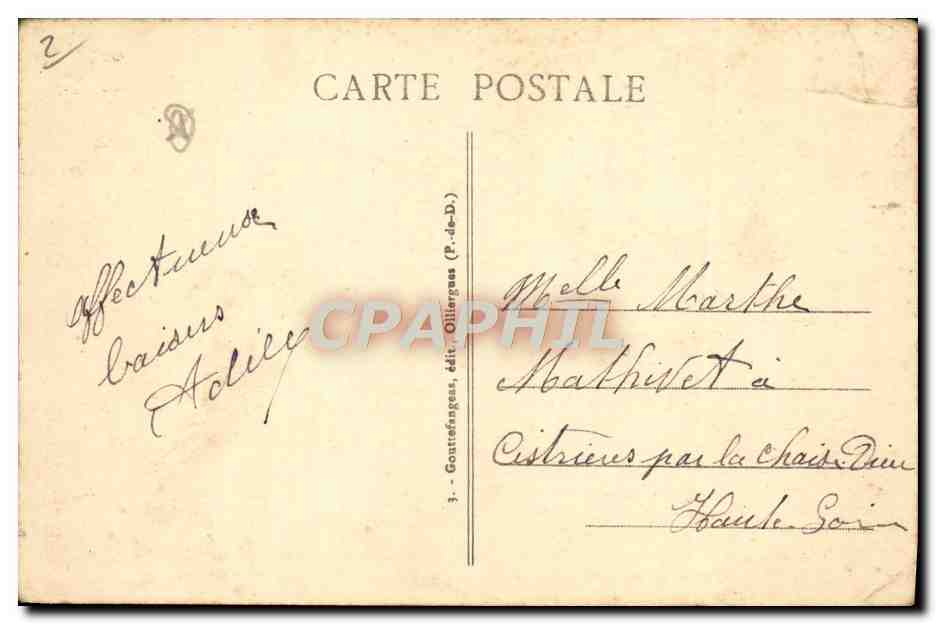 2
CARTE POSTALE
affectueux
baisers
3. - Gouttefangeas, édit., Olliergues (P.-de-D.)
CPAPHIL
Melle Marthe
Mathivet à
Cistrières par la Chaise-Dieu
Haute-Loire